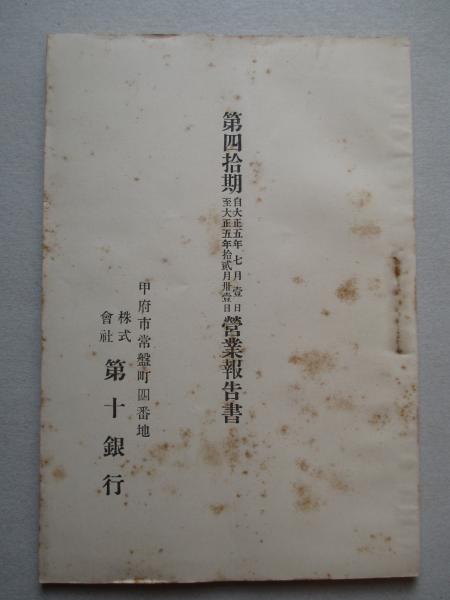 第四拾期自大正五年七月壹日至大正五年拾貳月卅壹日營業報告書
甲府市常盤町四番地
株式會社第十銀行